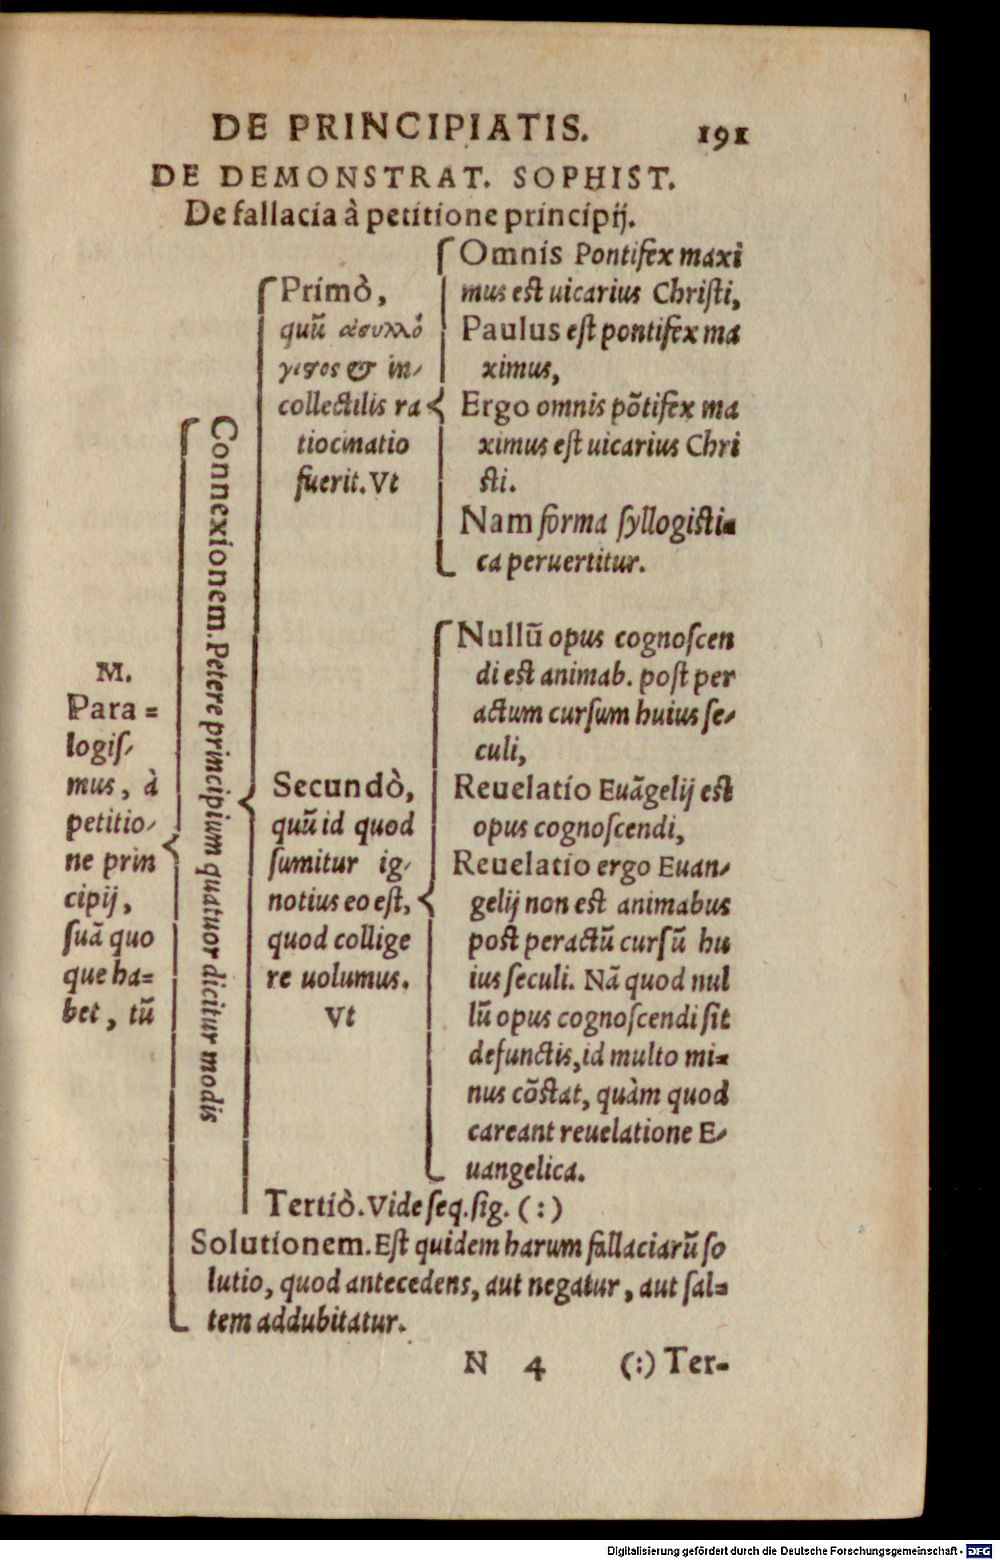 DE PRINCIPIATIS. 191
DE DEMONSTRAT. SOPHIST.
De fallacia à petitione principij.
M.
Para=
logiſ-
mus, à
petitio-
ne prin
cipij,
ſuã quo
que ha=
bet, tũ
Connexionem. Petere principium quatuor dicitur modis
Primò,
quũ ἀσυλλό
γιςος & in-
collectilis ra
tiocinatio
fuerit. Vt
Omnis Pontifex maxi
mus eſt uicarius Chriſti,
Paulus eſt pontifex ma
ximus,
Ergo omnis põtifex ma
ximus eſt uicarius Chri
ſti.
Nam forma ſyllogiſti=
ca peruertitur.
Secundò,
quũ id quod
ſumitur ig-
notius eo eſt,
quod collige
re uolumus.
Vt
Nullũ opus cognoſcen
di eſt animab. poſt per
actum curſum huius ſe-
culi,
Reuelatio Euãgelij eſt
opus cognoſcendi,
Reuelatio ergo Euan-
gelij non eſt animabus
poſt peractũ curſũ hu
ius ſeculi. Nã quod nul
lũ opus cognoſcendi ſit
defunctis, id multo mi=
nus cõſtat, quàm quod
careant reuelatione E-
uangelica.
Tertiò. Vide ſeq. ſig. (:)
Solutionem. Eſt quidem harum fallaciarũ ſo
lutio, quod antecedens, aut negatur, aut ſal=
tem addubitatur.
N 4 (:) Ter-
Digitalisierung gefördert durch die Deutsche Forschungsgemeinschaft - DFG